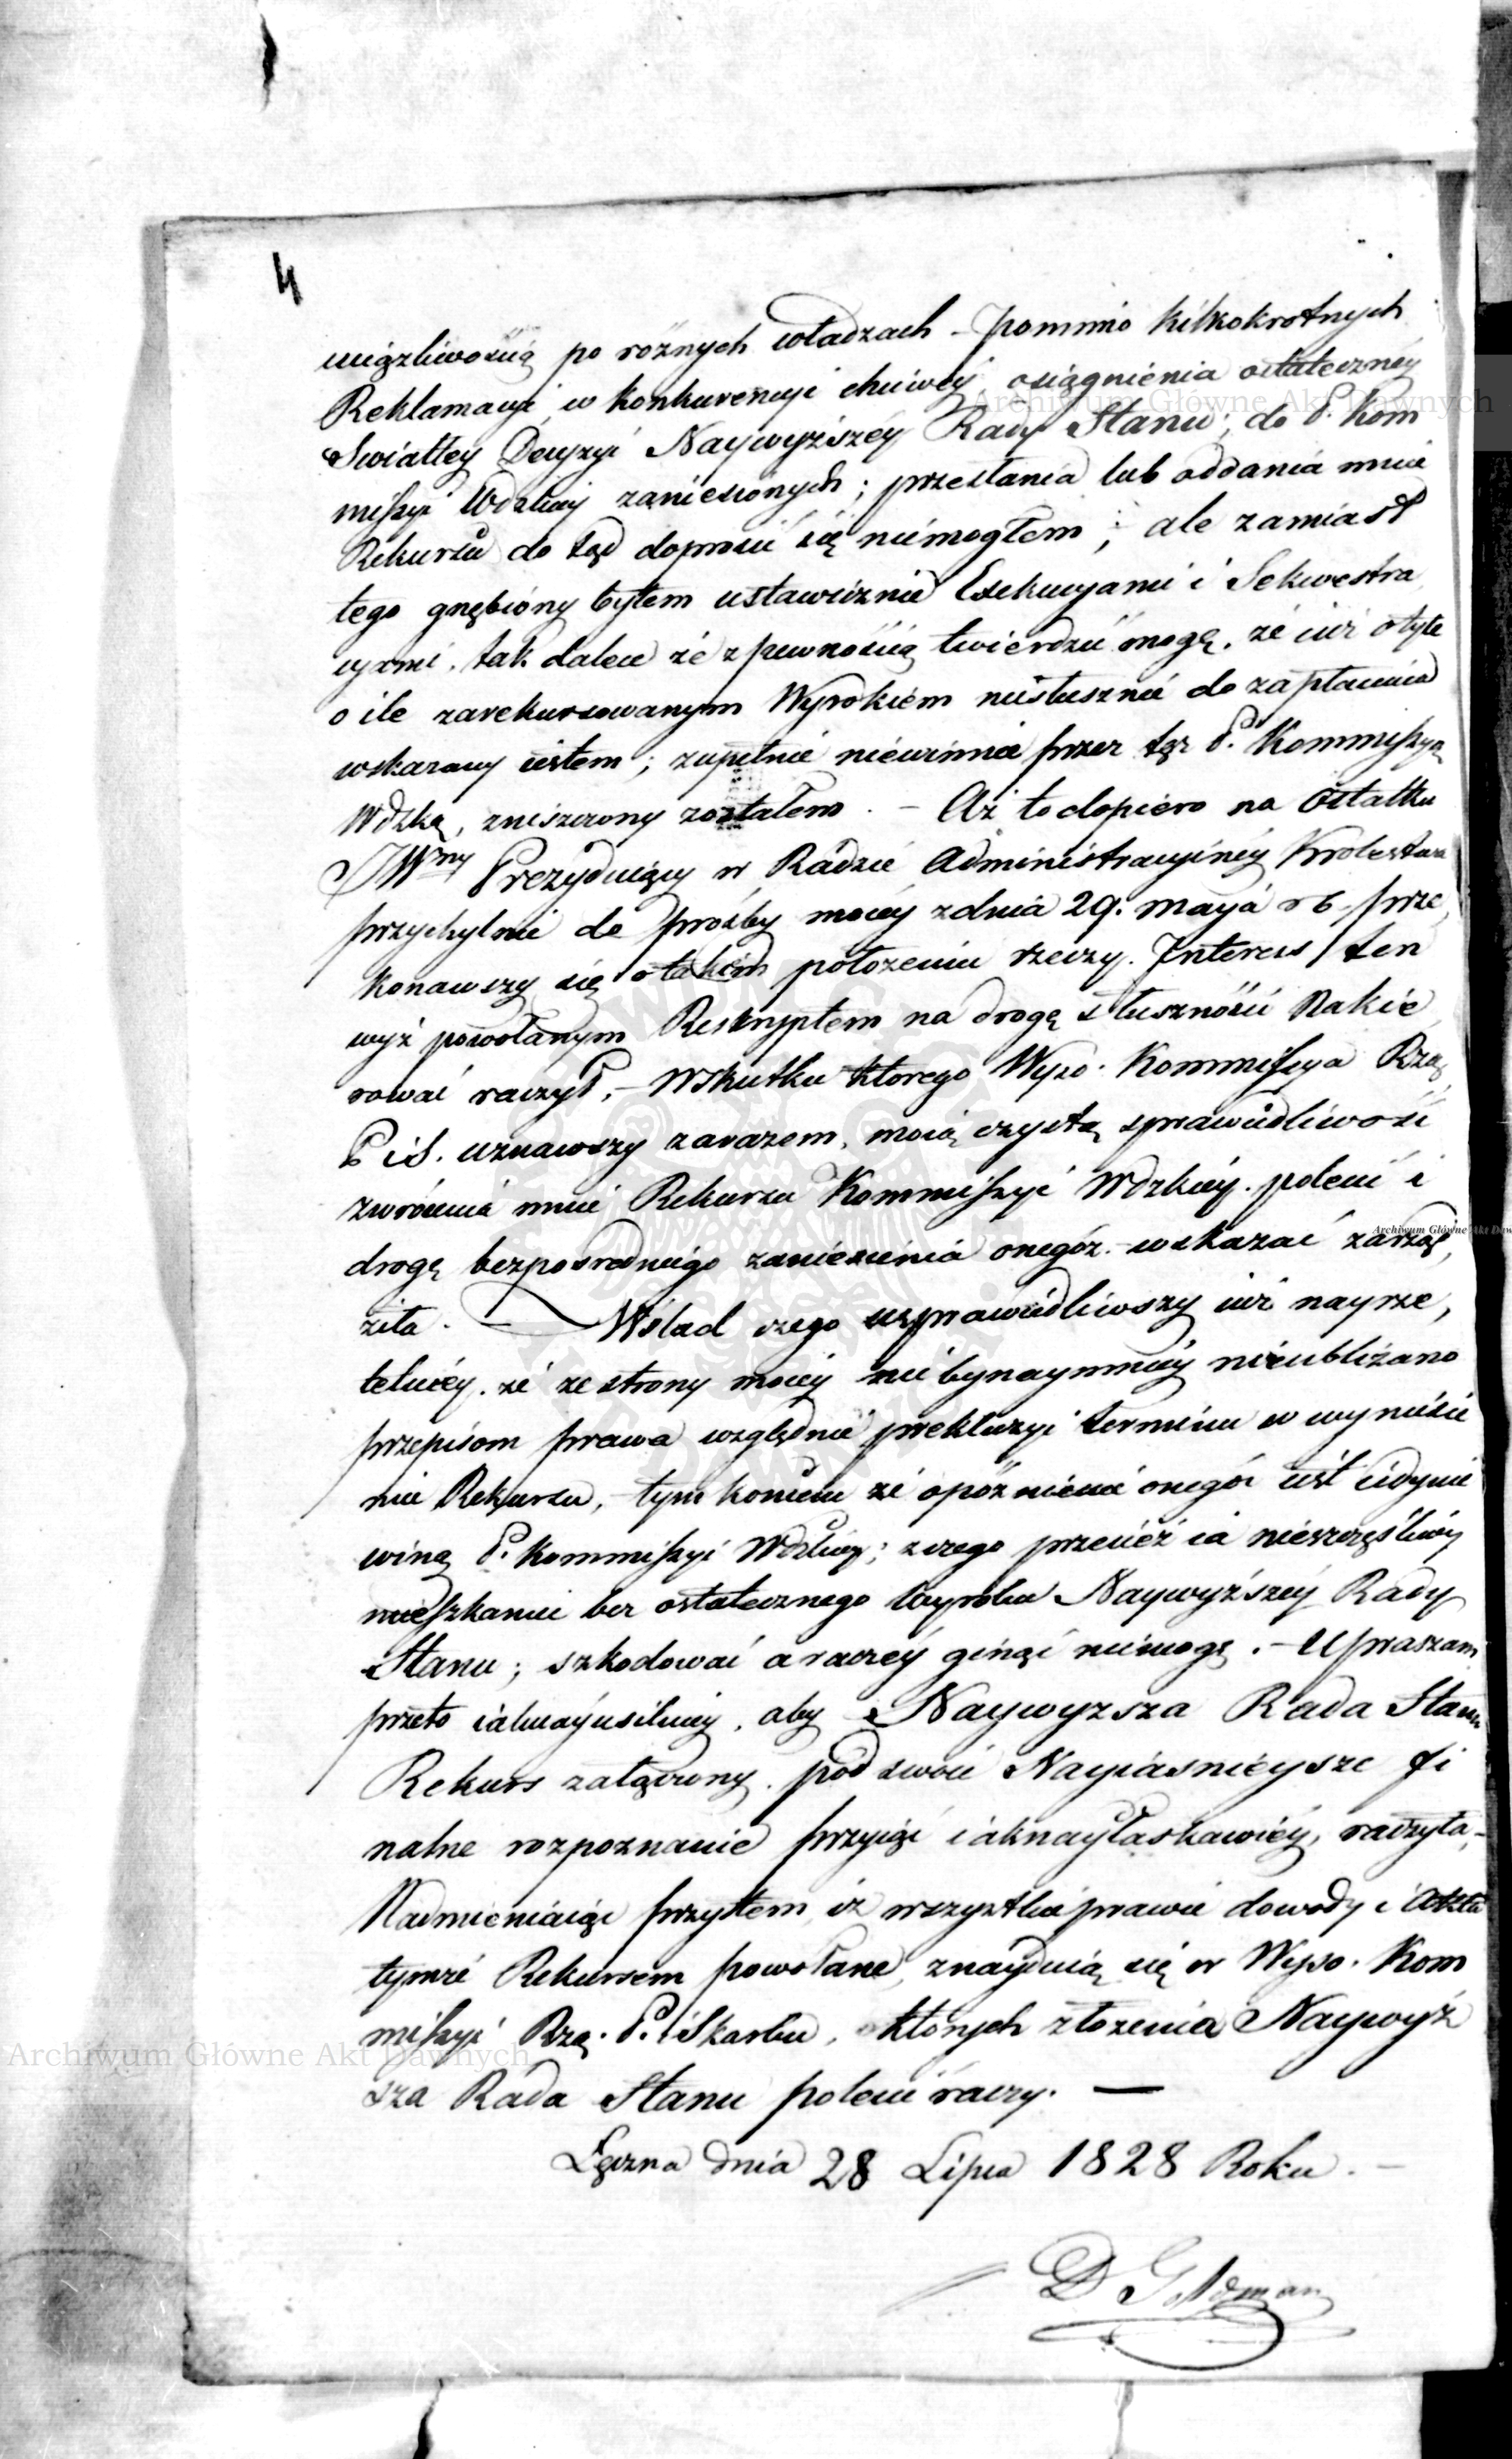 4
uciążliwością po rożnych władzach – pomimo kilkokrotnych
Reklamacyi w konkurencyi chciwey osiągnienia ostateczney
Swiatłey Decyzyi Naywyższéy Rady Stanu; do P. Kom
missyi Wdzkiey zaniesionych; przesłania lub oddania mnie
Rekursu do tąd doprosić się niemogłem; ale zamiast
tego gnębiony byłem ustawicznie Exekucyami i Sekwestra
cyami, tak dalece że z pewnością twierdzić mogę, że iuż otyle
o ile zarekursowanym Wyrokiem niesłusznie do zapłacenia
wskazany iestem; zupełnie niewinnie przez tęż P. Kommissyą
Wdzką, zniszczony zostałem. – Aż to dopiero na Ostatku
JWny Prezyduiący w Radzie Administracyinéy Krolestwa
przychylnie do proźby moiey z dnia 29. Maja r b. prze
konawszy się o takim położeniu rzeczy. Interes ten
wyż powołanym Reskryptem na drogę słuszności Nakie
rować raczył, – Wskutku którego Wyso. Kommissya Rzą
P i S. uznawszy zarazem, moią czystą sprawiedliwość
zwrócenia mnie Rekursu Kommissyi Wdzkiey. polecić i
drogę bezpośredniego zaniesienia onegóż. – wskazać zarzą
ziła. – Wślad czego usprawiedliwszy iuż nayrze,
telniéy. że ze strony moiey nie bynaymniéy nieubliżano
przepisom prawa względnie prekluzyi terminu w wyniesie
nie Rekursu, – tym końcem że opóźnienie onegóż iest iedynie
winą P. Kommissyi Wdzkiey; z czego przecież ia nieszczęśliwy
mieszkaniec bez ostatecznego Wyroku Naywyższéy Rady
Stanu; szkodować a raczéy ginąć niemogę. – Upraszam
przeto iaknayusilniey, aby Naywyzsza Rada Stanu
Rekurs załączony. pod swoie Nayiaśnieysze fi
nalne rozpoznanie przyiąć iaknayłaskawiéy, raczyła, –
Nadmieniaiąc przytem, iż wszystkie prawie dowody i Akta
tymże Rekursem powołane, znayduią się w Wyso. Kom
missyi Rzą. P. i Skarbu, o których złożenia Naywyż
sza Rada Stanu polecić raczy. —
Łęczna dnia 28 Lipca 1828 Roku. –
D Goldman
Archiwum Główne Akt Dawnych
Archiwum Główne Akt Daw
Archiwum Główne Akt Dawnych